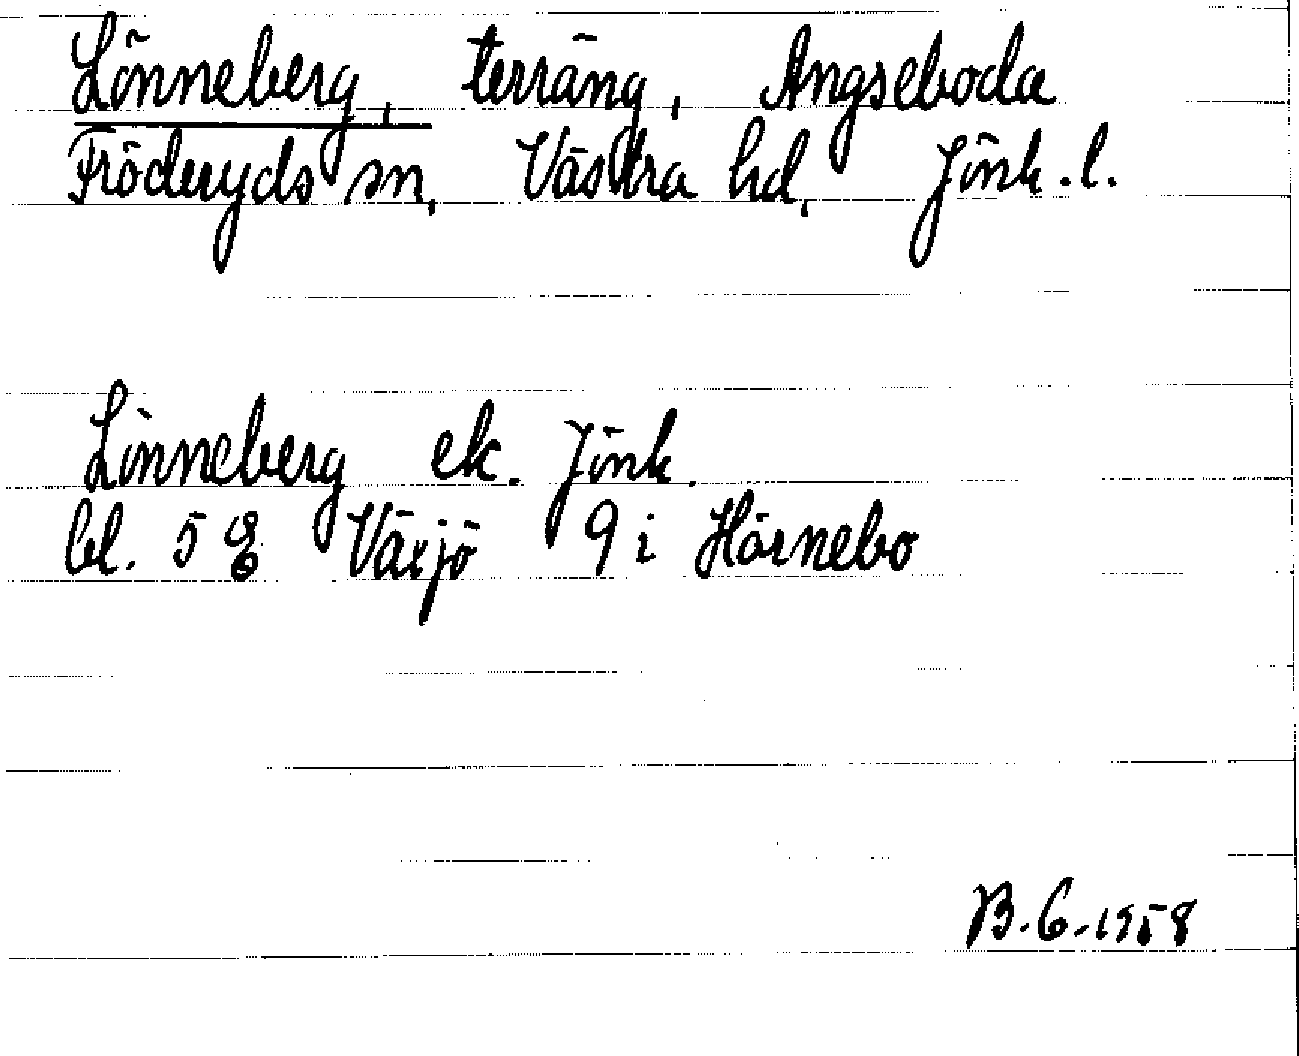 Lönneberg, terräng, Angseboda
Fröderyds sn, Västra hd, Jönk.l.
Lönneberg ek. Jönk.
bl. 5 E Växjö 9 i Hörnebo
B.G.1958